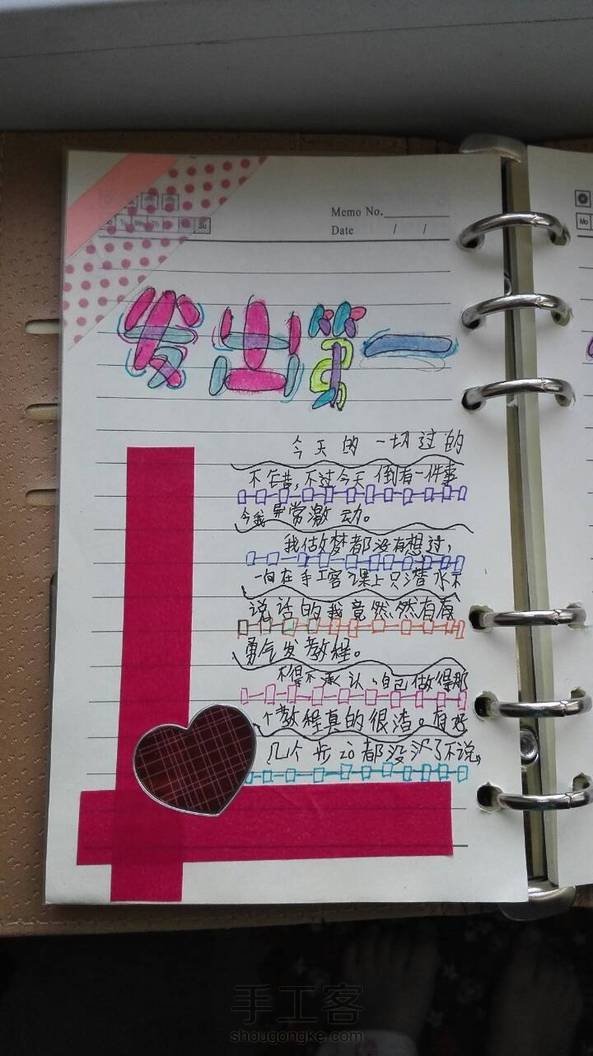 Memo No.
Date / /
发出第一
今天的一切过的
不错，不过今天倒有一件事
令我异常激动。
我做梦都没有想过，
一向在手工客了课上只潜水不
说话的我竟然然有有
勇气发教程。
不得不承认，自己做得那
个教程真的很渣。有好
几个步 都没 了不说，
手工客
shougongke.com